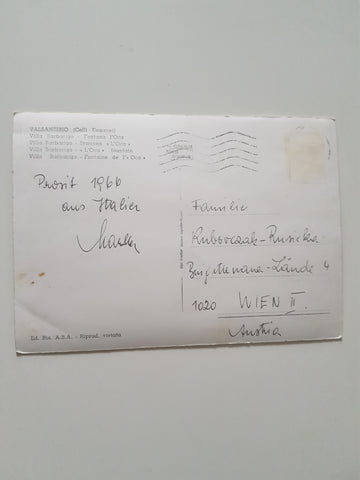 VALSANZIBIO (Colli Euganei)
Villa Barbarigo - Fontana l'Oca
Villa Barbarigo - Brunnen « L'Oca »
Villa Barbarigo - « L'Oca » fountain
Villa Barbarigo - Fontaine de l'« Oca »
Prosit 1966
aus Italien
Familie
Kubovczak-Rusicka
Brigittenauer-Lände 4
1020 WIEN II.
Austria
Ed. Sta. A.B.A. - Riprod. vietata